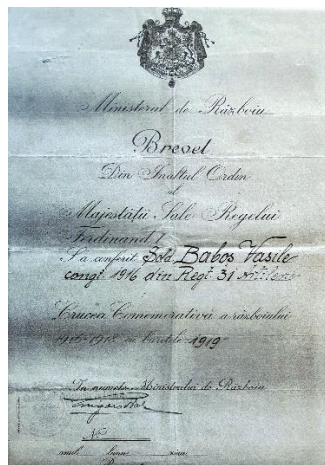 Ministerul de Războiu
Brevet
Din Inaltul Ordin
al
Majestăţii Sale Regelui
Ferdinand I
S'a conferit Sold. Babos Vasile
congt 1916 din Regt 31 Artilerie
Crucea Comemorativa a războiului
1916-1918 cu baretele 1919
In numele Ministrului de Războiu
No
anul luna ziua